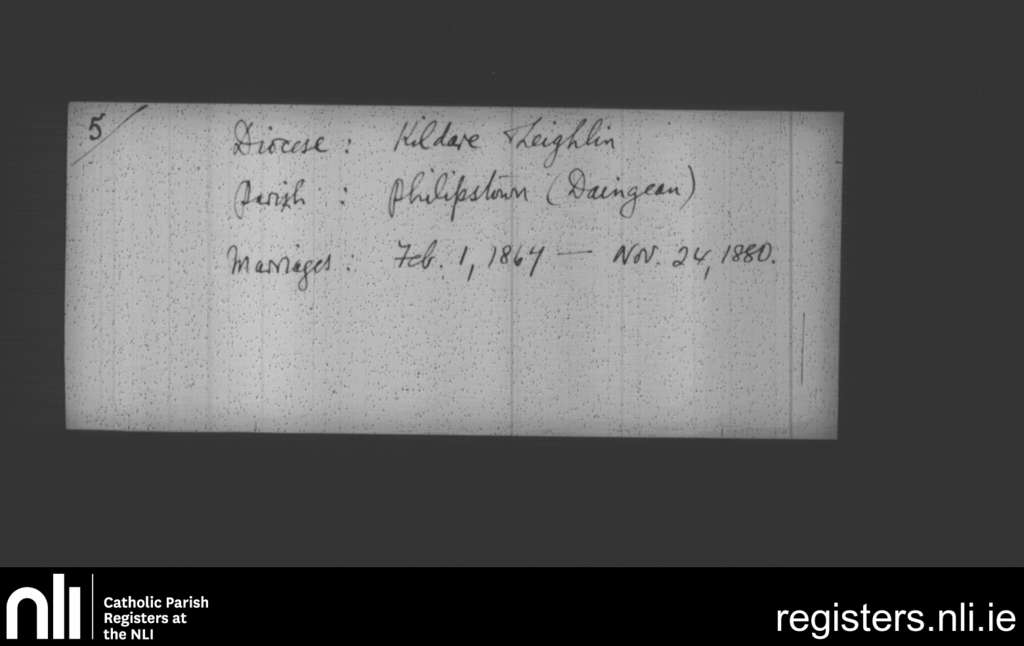 5/
Diocese : Kildare & Leighlin
Parish : Philipstown (Daingean)
Marriages : Feb. 1, 1867 — Nov. 24, 1880.
nli
Catholic Parish
Registers at
the NLI
registers.nli.ie